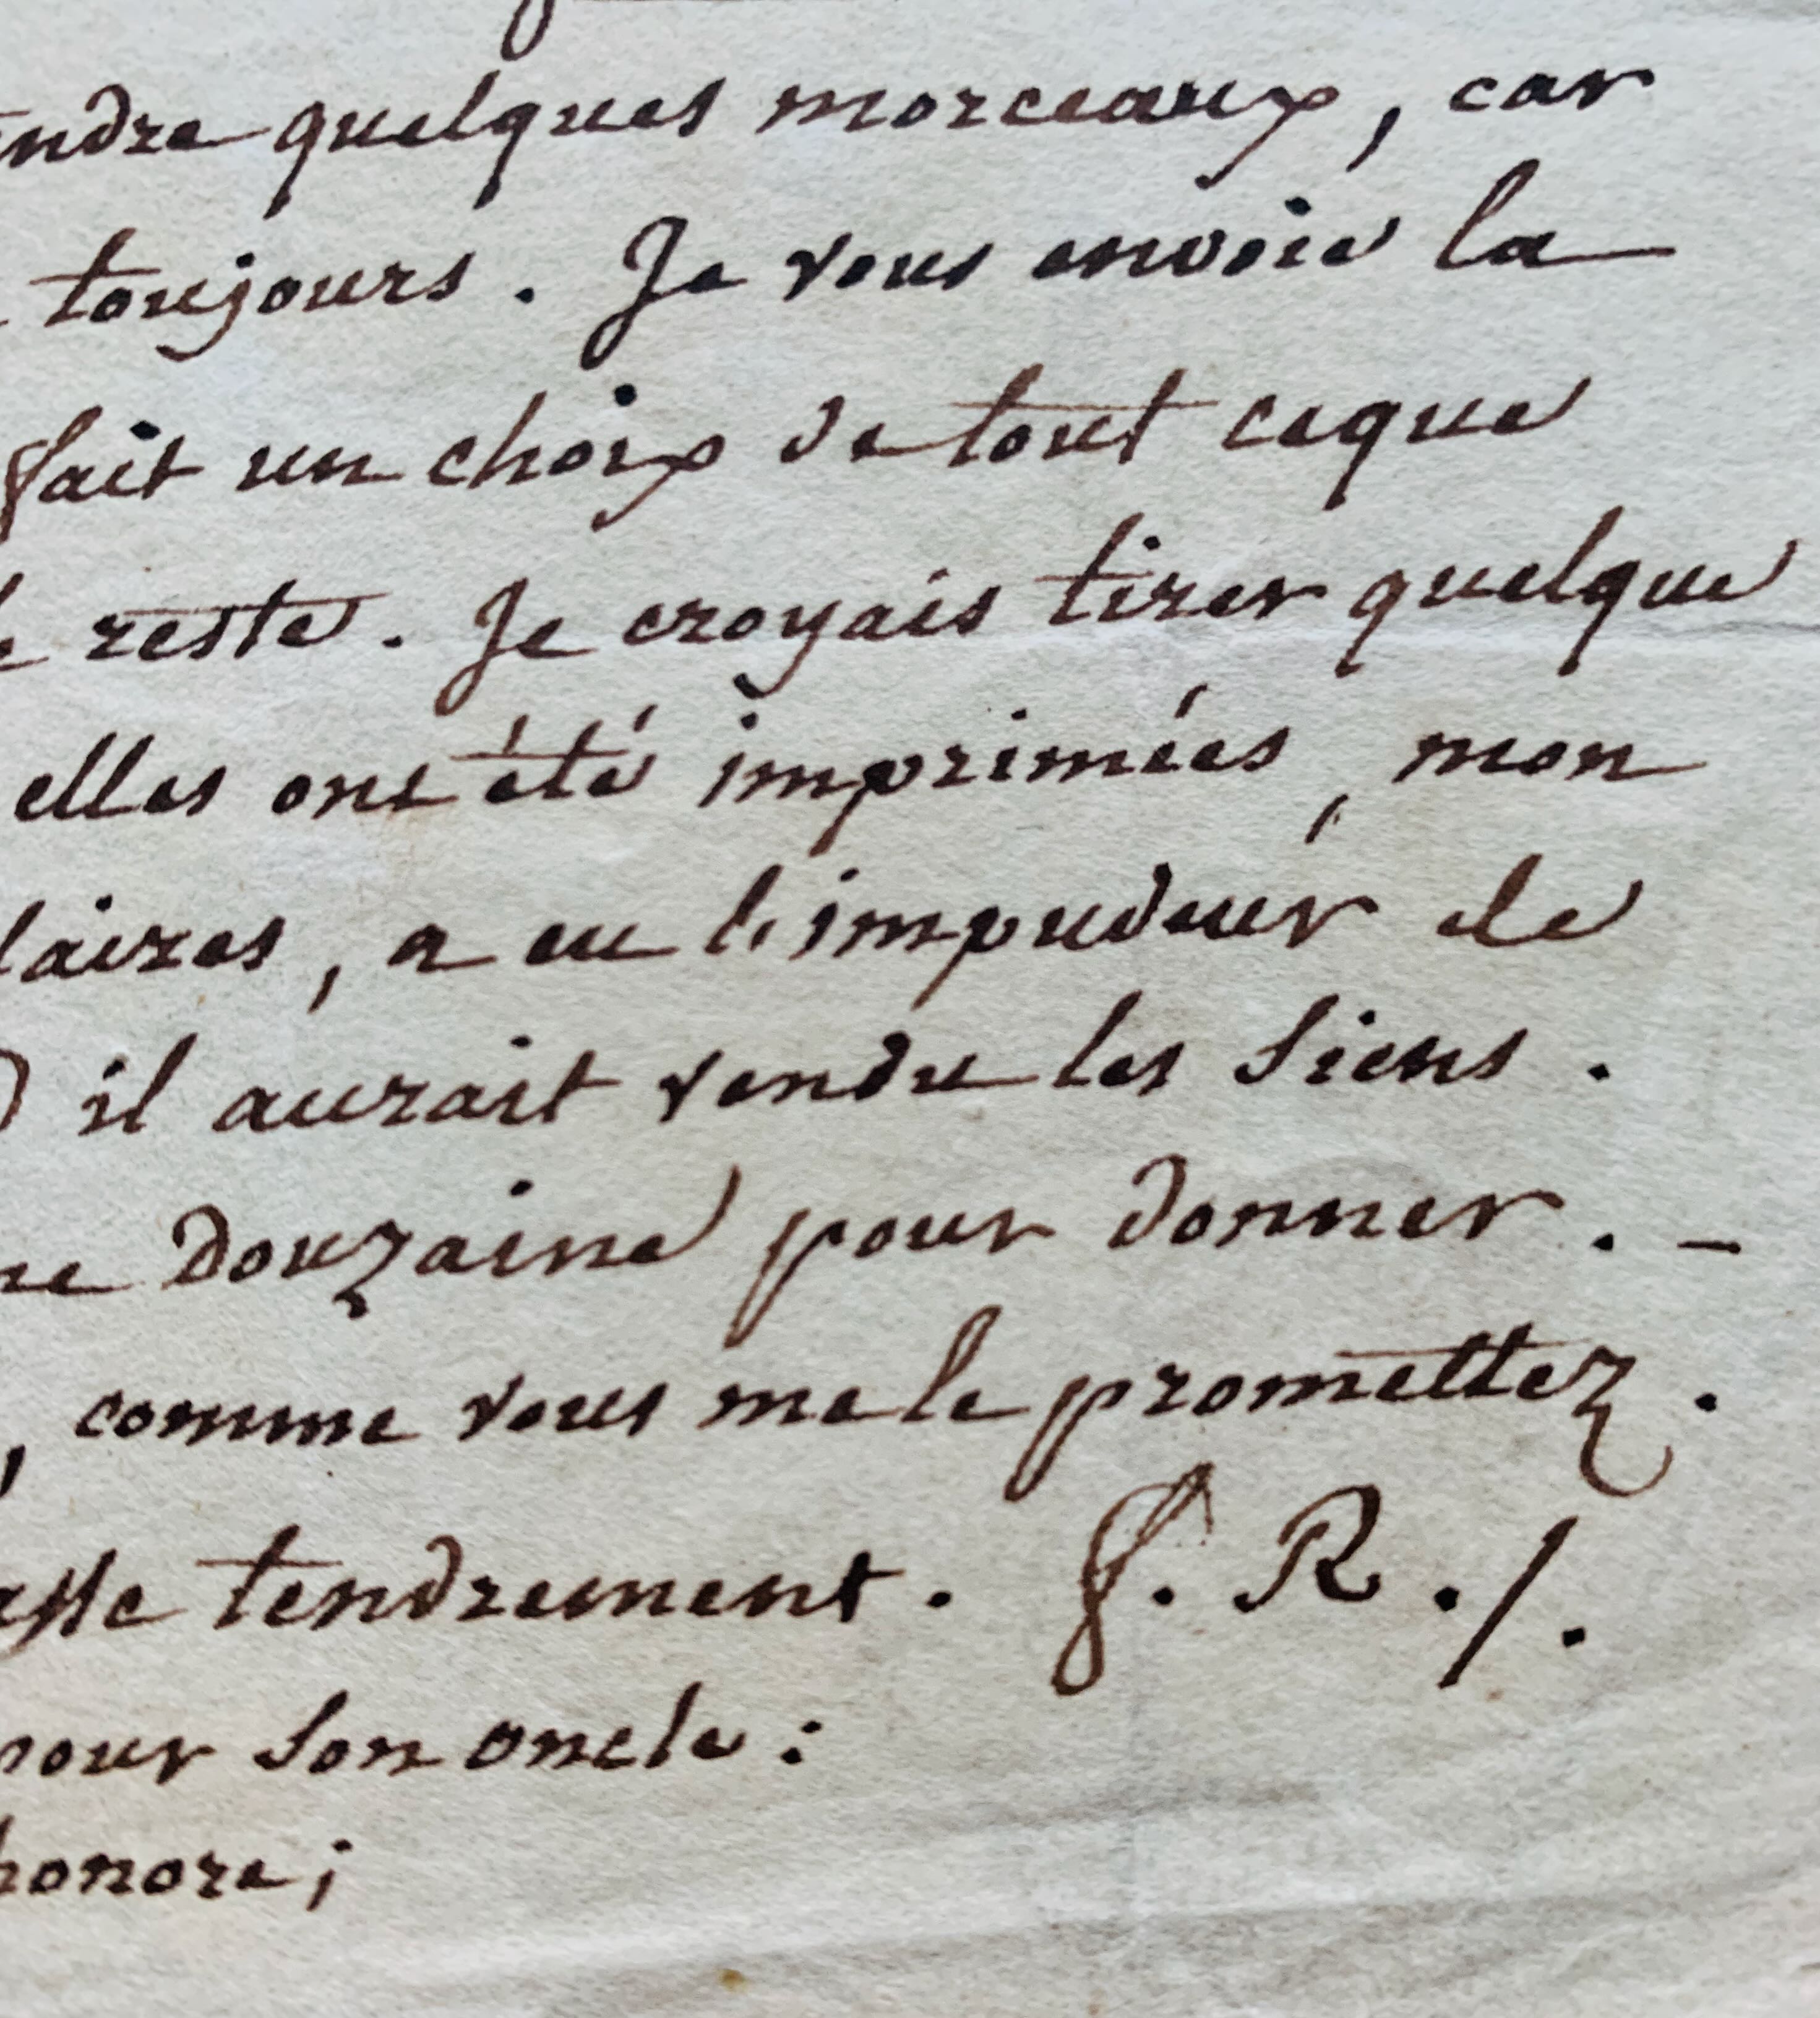 ndre quelques morceaux, car
toujours. Je vous envoie la
fait un choix de tout ceque
reste. Je croyais tirer quelque
elles ont été imprimées, mon
laires, a eu l'impudeur de
il aurait vendu les siens.
ne douzaine pour donner. —
, comme vous me le promettez.
asse tendrement. J. R. /.
pour son oncle :
honore ;